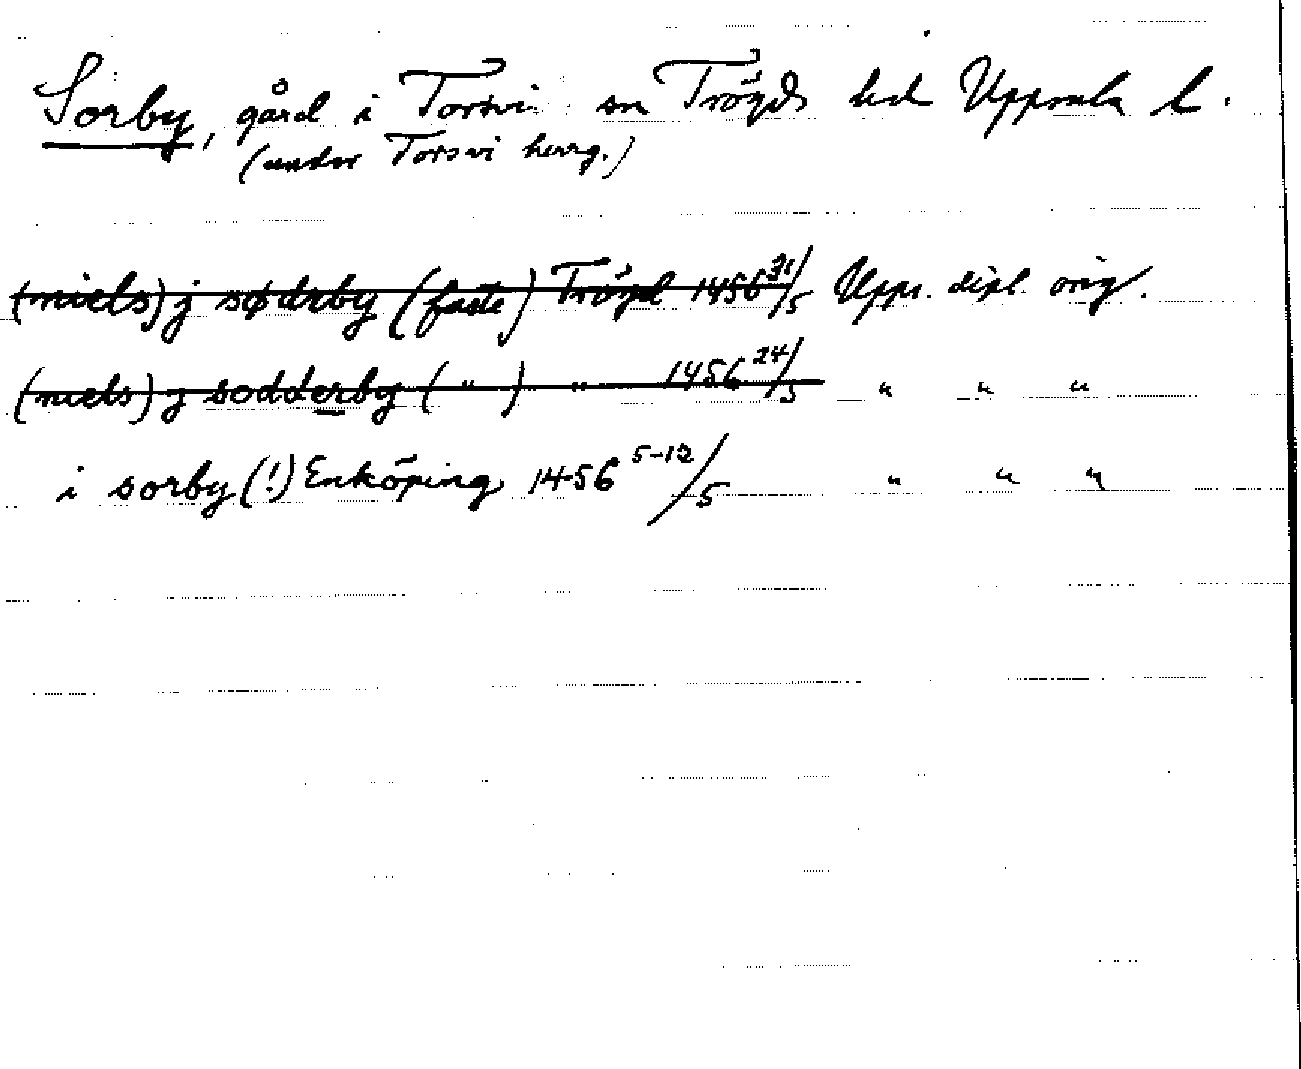 Sorby, gård i Torsvi sn Trögds hd Uppsala l.
(under Torsvi herrg.)
(niels) j søderby (faste) Trögd 1456 31/5 Upps. dipl. orig.
(niels) j sodderby ( " ) " 1456 24/5 " " "
i sorby (!) Enköping 1456 5-12/5 " " "